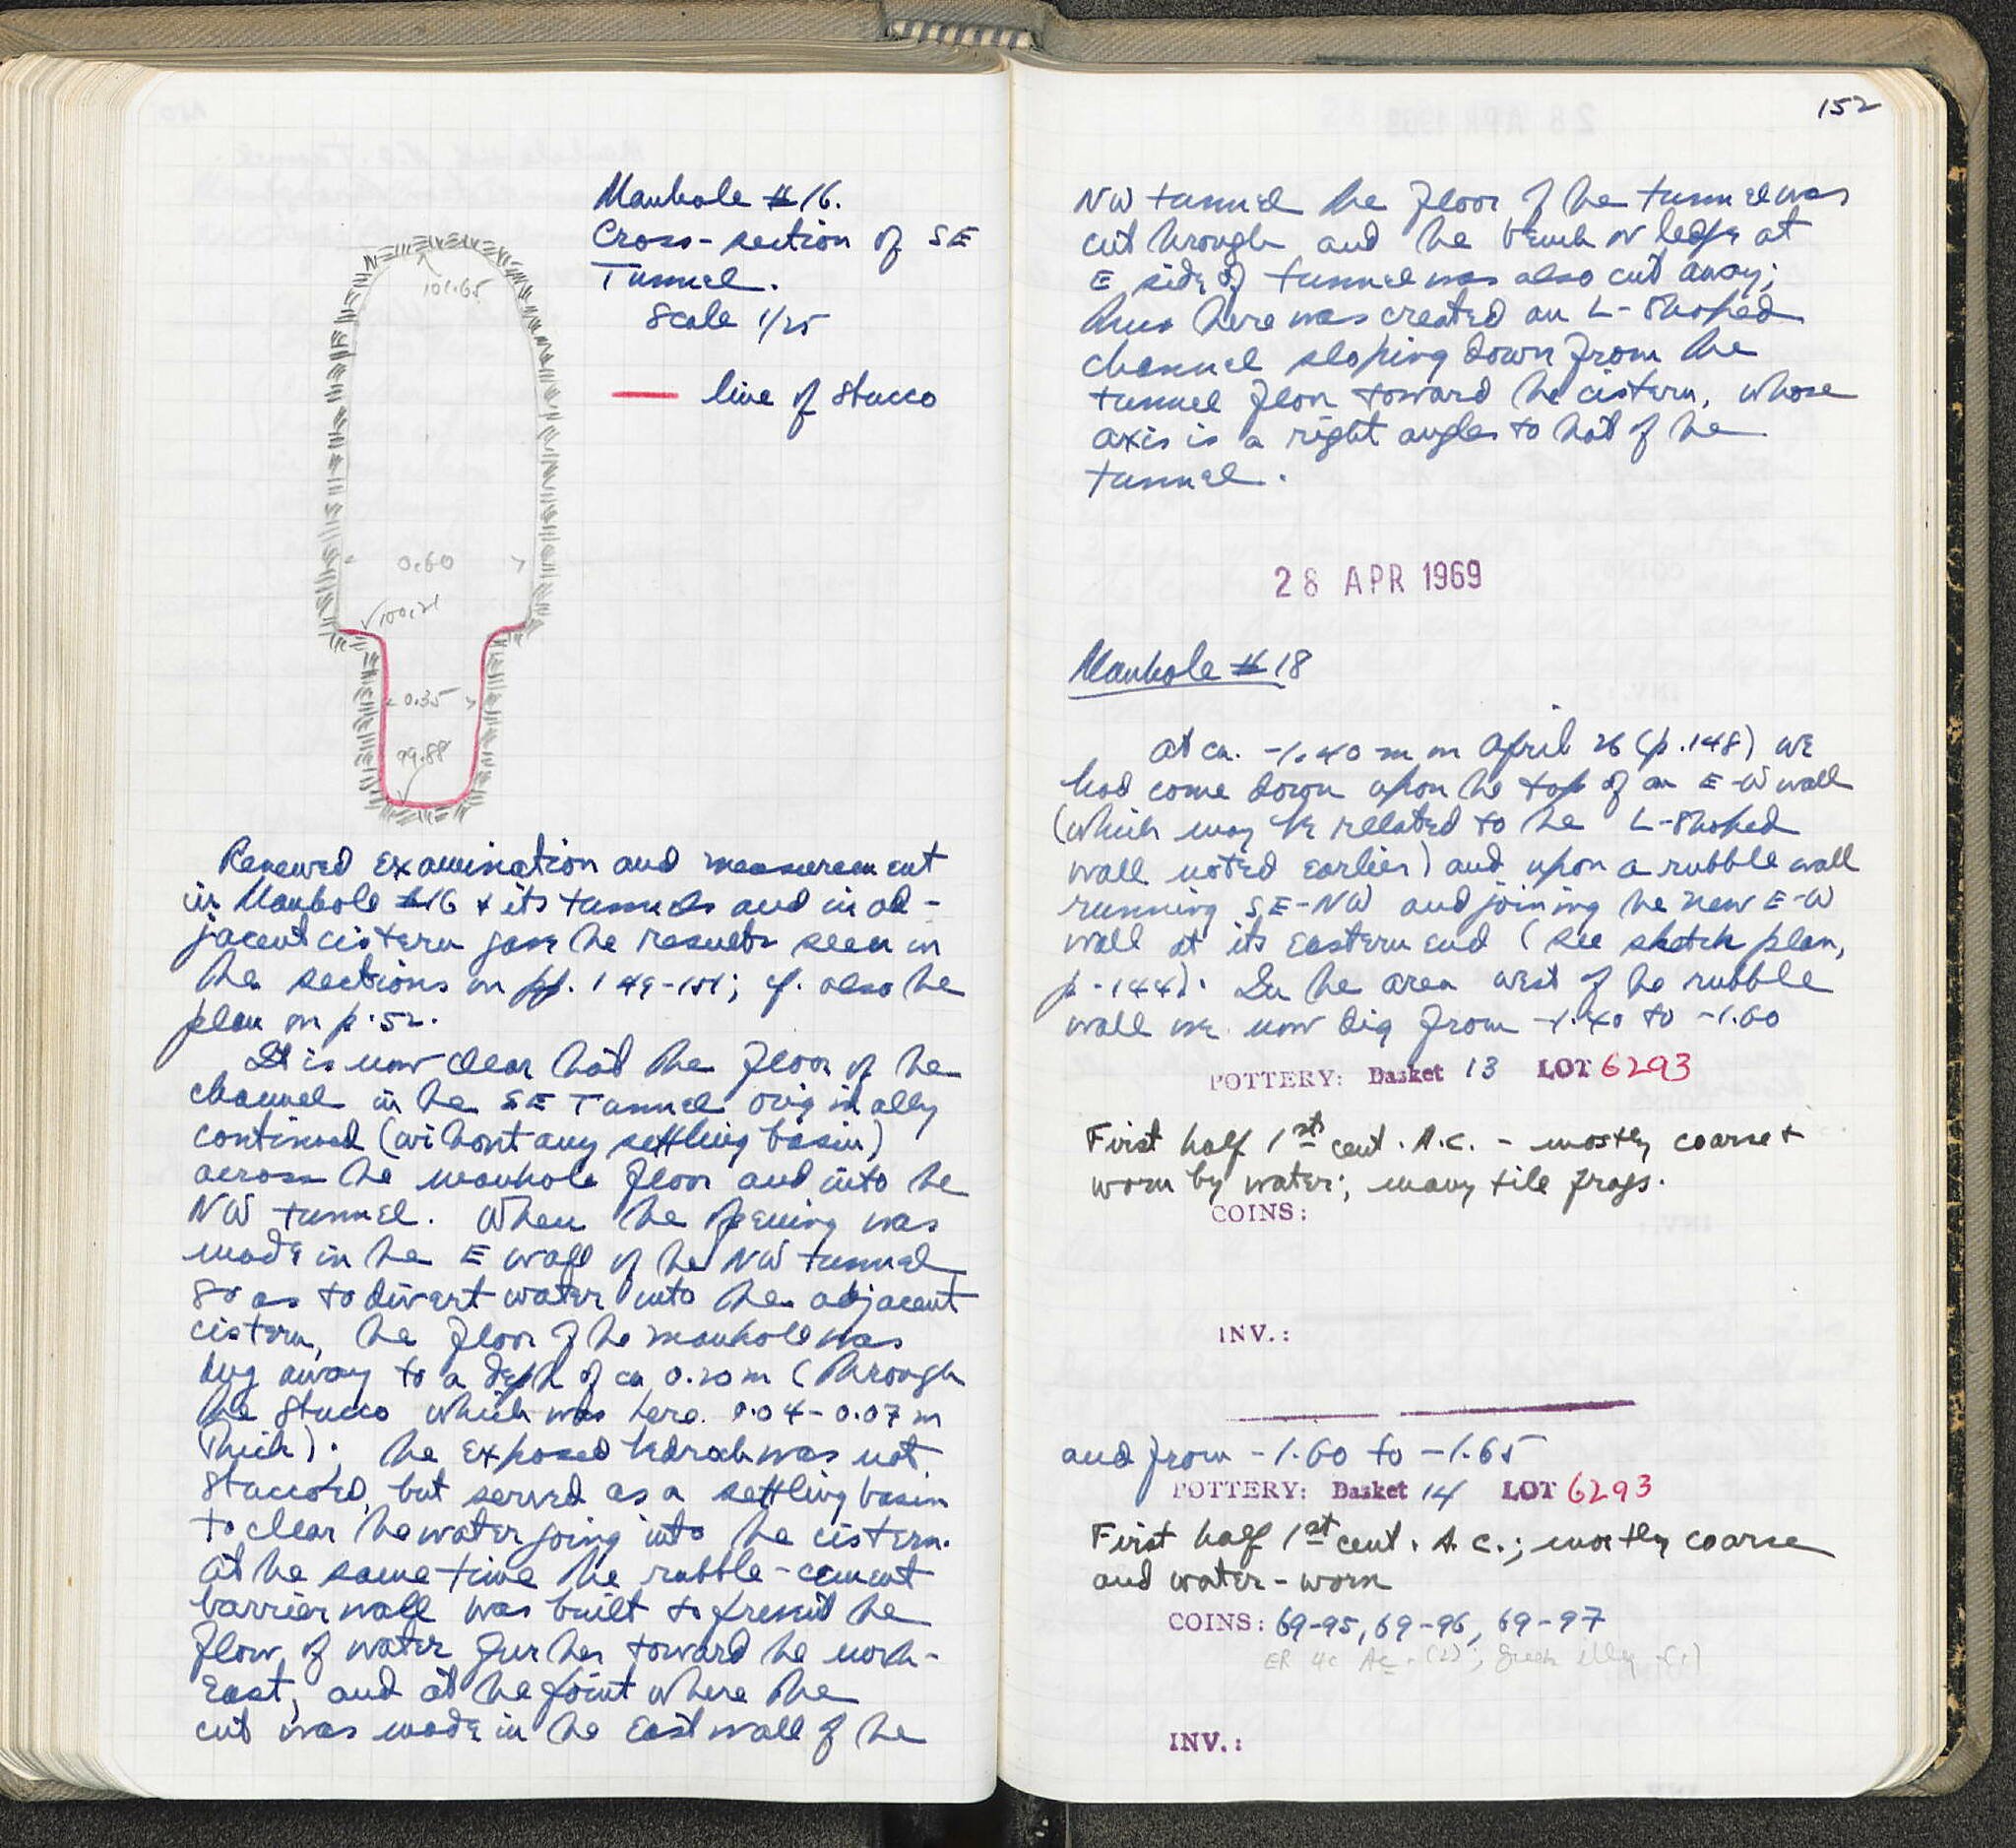 Manhole #16.
Cross-section of SE
Tunnel.
Scale 1/25
line of stucco
101.65
0.60
100.21
0.35
99.88
Renewed examination and measurement
in Manhole #16 & its tunnels and in ad-
jacent cistern gave the results seen in
the sections on pp. 149-151; cf. also the
plan on p. 52.
It is now clear that the floor of the
channel in the SE Tunnel originally
continued (without any settling basin)
across the manhole floor and into the
NW tunnel. When the opening was
made in the E wall of the NW tunnel
so as to divert water into the adjacent
cistern, the floor of the manhole was
dug away to a depth of ca 0.20 m (through
the stucco which was here 0.04-0.07 m
thick); the exposed bedrock was not
stuccoed, but served as a settling basin
to clear the water going into the cistern.
At the same time the rubble-cement
barrier wall was built to prevent the
flow of water further toward the north-
east, and at the point where the
cut was made in the East wall of the
152
NW tunnel the floor of the tunnel was
cut through and the bench or ledge at
E side of tunnel was also cut away;
thus there was created an L-shaped
channel sloping down from the
tunnel floor toward the cistern, whose
axis is a right angles to that of the
tunnel.
28 APR 1969
Manhole #18
At ca. -1.40 m on April 26 (p. 148) we
had come down upon the top of an E-W wall
(which may be related to the L-shaped
wall noted earlier) and upon a rubble wall
running SE-NW and joining the new E-W
wall at its eastern end (see sketch plan,
p. 144). In the area west of the rubble
wall we now dig from -1.40 to -1.60
POTTERY: Basket 13 LOT 6293
First half 1st cent. A.C. - mostly coarse +
worn by water; many tile frags.
COINS:
INV.:
and from -1.60 to -1.65
POTTERY: Basket 14 LOT 6293
First half 1st cent. A.C.; mostly coarse
and water-worn
COINS: 69-95, 69-96, 69-97
ER 4c AC. (2); Greek illeg. (1)
INV.: